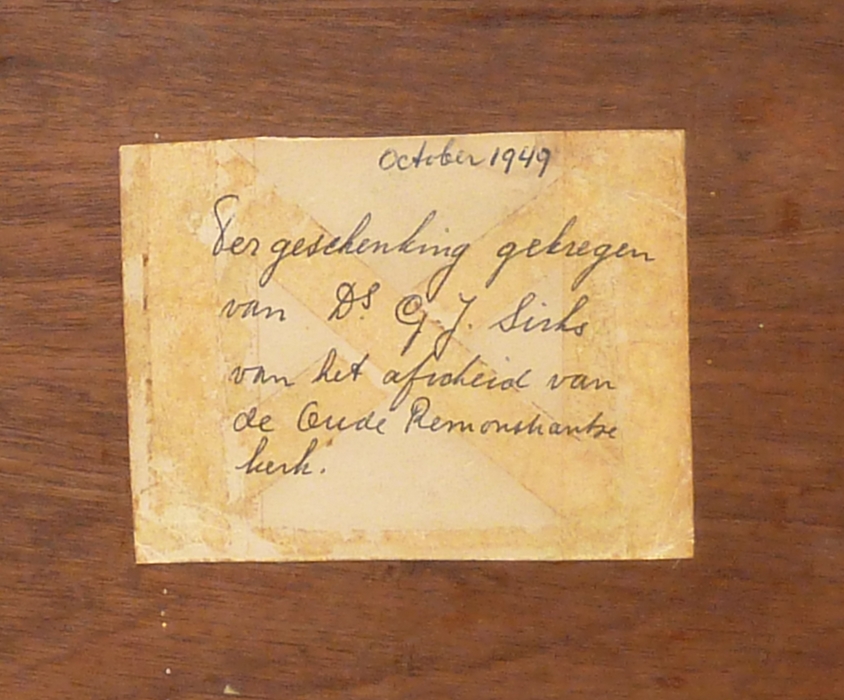 October 1949
Ter geschenking gekregen
van Ds. G. J. Sirks
van het afscheid van
de Oude Remonstrantse
kerk.